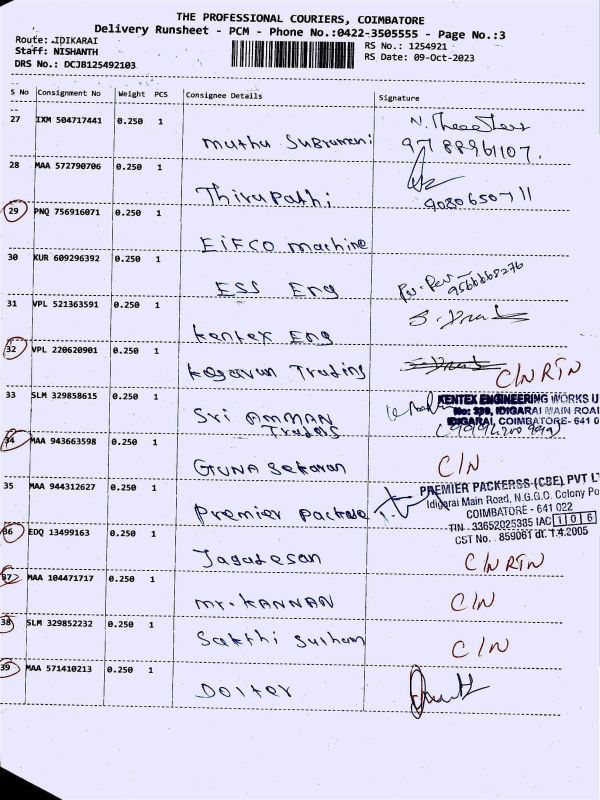 THE PROFESSIONAL COURIERS, COIMBATORE
Delivery Runsheet - PCM - Phone No.:0422-3505555 - Page No.:3
Route: IDIKARAI
Staff: NISHANTH
DRS No.: DCJB125492103
RS No.: 1254921
RS Date: 09-Oct-2023
S No Consignment No Weight PCS Consignee Details Signature
27 IXM 504717441 0.250 1
Muthu Subramani
9788961107.
28 MAA 572790706 0.250 1
Thirupathi 9080650711
29 PNQ 756916071 0.250 1
EIFCO machine
30 KUR 609296392 0.250 1
ESS Eng
31 VPL 521363591 0.250 1
kentex Eng
32 VPL 220620901 0.250 1
Trading C/N RTN
33 SLM 329858615 0.250 1
KENTEX ENGINEERING WORKS U
No: 329, IDIGARAI MAIN ROAD
IDIGARAI, COIMBATORE- 641 0
Sri AMMAN
Traders
34 MAA 943663598 0.250 1
GUNA Sekaran C/N
35 MAA 944312627 0.250 1
PREMIER PACKERSS (CBE) PVT LT
Idigarai Main Road, N.G.G.O. Colony Po
COIMBATORE - 641 022
TIN 33652025385 IAC 106
CST No. 859061 dt. 1.4.2005
Premier Package
36 EDQ 13499163 0.250 1
Jagadesan C/N RTN
37 MAA 104471717 0.250 1
Mr. KANNAN C/N
38 SLM 329852232 0.250 1
Sakthi C/N
39 MAA 571410213 0.250 1